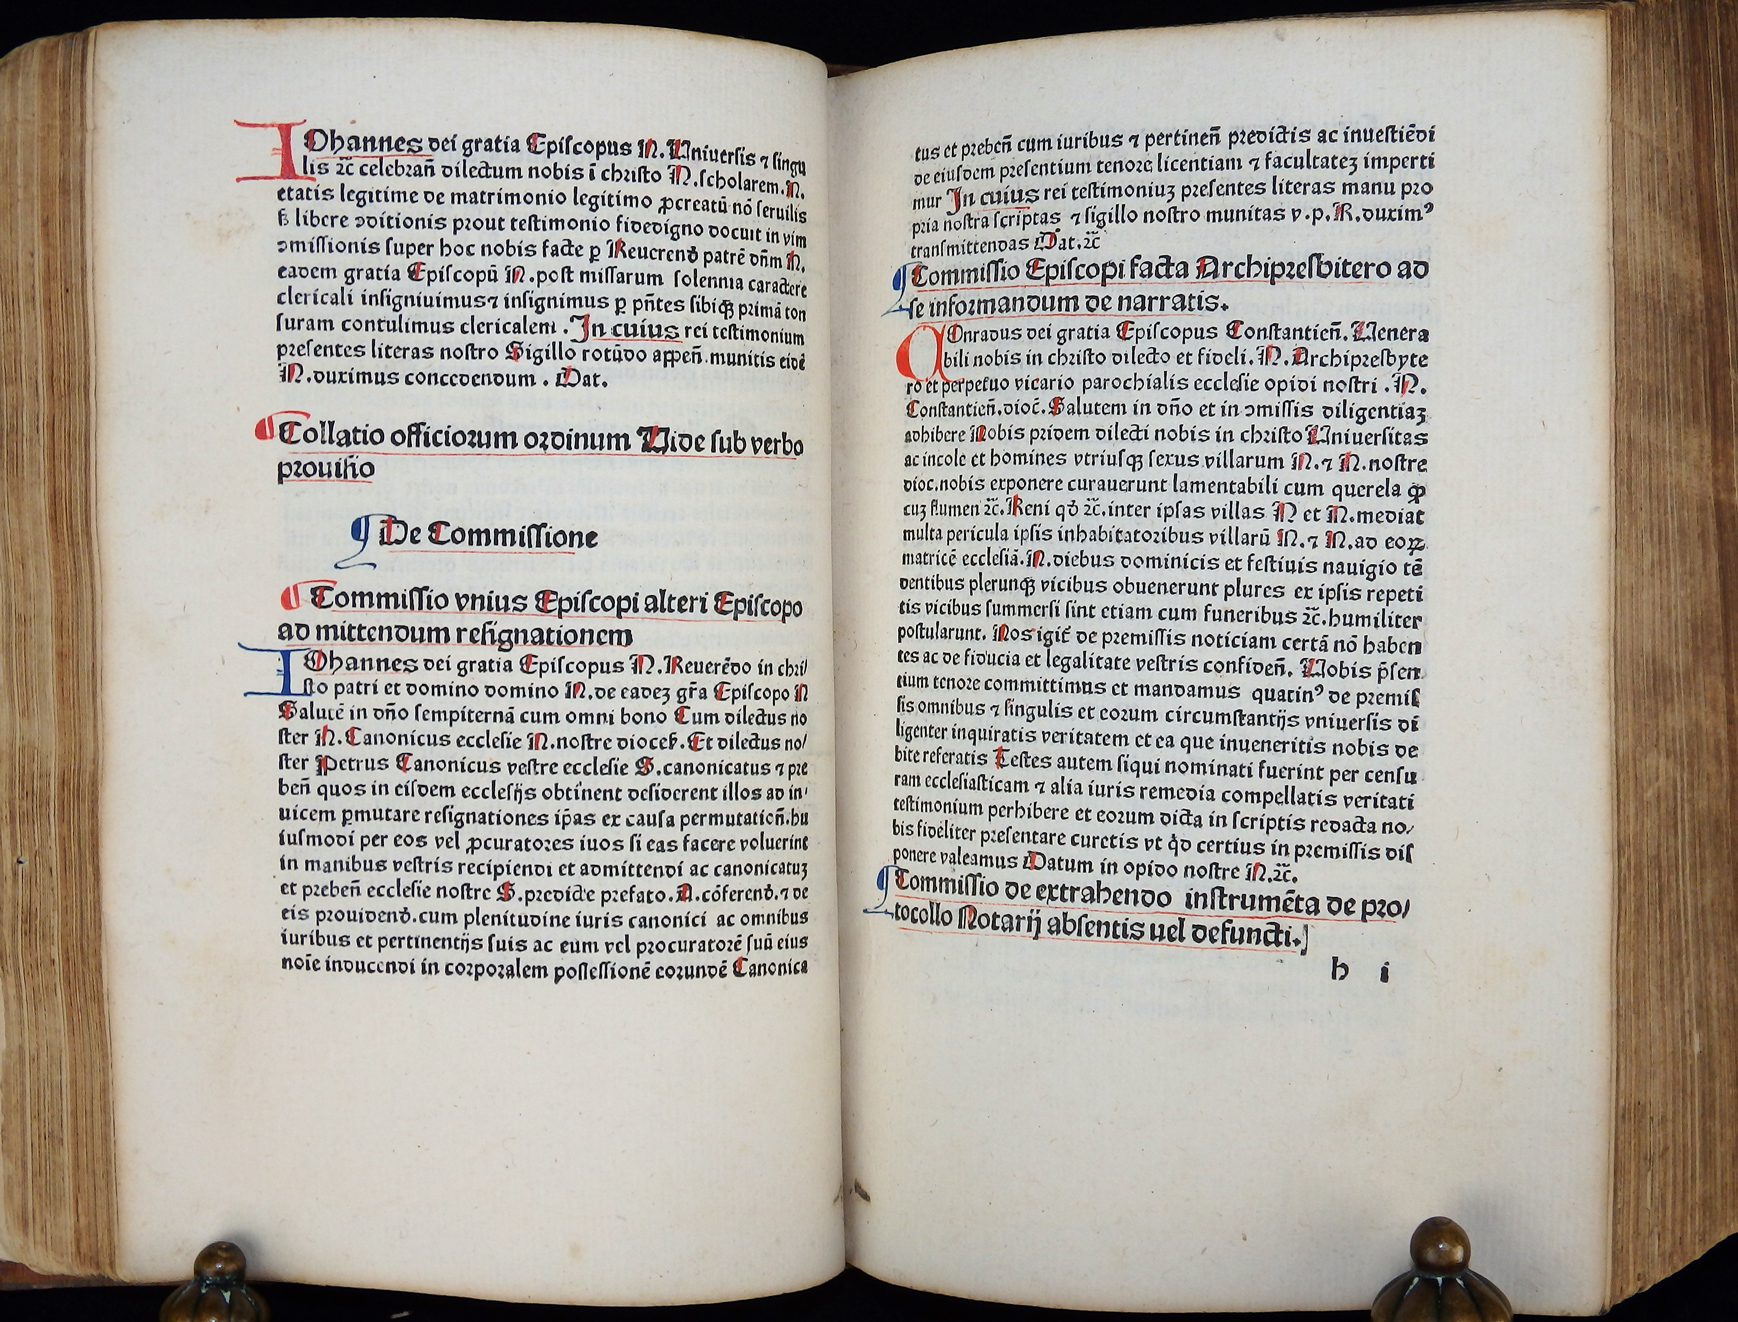 IOhannes dei gratia Episcopus N. Uniuersis ⁊ singu
lis ⁊c̃ celebrañ dilectum nobis ĩ christo N. scholarem. N.
etatis legitime de matrimonio legitimo ꝓcreatũ nõ seruilis
sꝫ libere ↄditionis prout testimonio fidedigno docuit in vim
ↄmissionis super hoc nobis facte ꝑ Reuerend̾ patrẽ dñm N.
eadem gratia Episcopũ N. post missarum solennia caractere
clericali insigniuimus⁊ insignimus ꝑ pñtes sibiqꝫ primã ton
suram contulimus clericalem .In cuius rei testimonium
presentes literas nostro Sigillo rotũdo appeñ. munitis eidẽ
N. duximus concedendum . Dat.
¶ Collatio officiorum ordinum Vide sub verbo
prouisio
¶ De Commissione
¶ Commissio vnius Episcopi alteri Episcopo
ad mittendum resignationem
IOhannes dei gratia Episcopus N. Reuerẽdo in chri/
sto patri et domino domino N. de eadeꝫ gr̃a Episcopo N
Salutẽ in dño sempiternã cum omni bono Cum dilectus no
ster N. Canonicus ecclesie N. nostre dioceẜ. Et dilectus no/
ster Petrus Canonicus vestre ecclesie S. canonicatus ⁊ pre
beñ quos in eisdem ecclesijs obtinent desiderent illos ad in/
uicem ꝑmutare resignationes ip̃as ex causa permutatioñ. hu
iusmodi per eos vel ꝓcuratores suos si eas facere voluerint
in manibus vestris recipiendi et admittendi ac canonicatuꝫ
et prebeñ ecclesie nostre S. predicte prefato. A. cõferend̾. ⁊ de
eis prouidend̾. cum plenitudine iuris canonici ac omnibus
iuribus et pertinentijs suis ac eum vel procuratorẽ suũ eius
noĩe inducendi in corporalem possessionẽ eorundẽ Canonica
tus et prebeñ cum iuribus ⁊ pertineñ predictis ac inuestiẽdi
de eiusdem presentium tenore licentiam ⁊ facultateꝫ imperti
mur In cuius rei testimoniuꝫ presentes literas manu pro
pria nostra scriptas ⁊ sigillo nostro munitas v. p. R. duximꝰ
transmittendas Dat. ⁊c̃
¶ Commissio Episcopi facta Archipresbitero ad
se informandum de narratis.
COnradus dei gratia Episcopus Constantieñ. Venera
bili nobis in christo dilecto et fideli. N. Archipresbyte
ro et perpetuo vicario parochialis ecclesie opidi nostri . N.
Constantieñ. dioc̃. Salutem in dño et in ↄmissis diligentiaꝫ
adhibere Nobis pridem dilecti nobis in christo Uniuersitas
ac incole et homines vtriusqꝫ sexus villarum N. ⁊ N. nostre
dioc. nobis exponere curauerunt lamentabili cum querela ꝙ
cuꝫ flumen ⁊c̃. Reni qd̾ ⁊c̃. inter ipsas villas N et N. mediat
multa pericula ipsis inhabitatoribus villarũ N. ⁊ N. ad eoꝝ
matricẽ ecclesiã. N. diebus dominicis et festiuis nauigio tẽ
dentibus plerunqꝫ vicibus obuenerunt plures ex ipsis repeti
tis vicibus summersi sint etiam cum funeribus ⁊c̃. humiliter
postularunt. Nos igit̃ de premissis noticiam certã nõ haben
tes ac de fiducia et legalitate vestris confideñ. Vobis p̃sen
tium tenore committimus et mandamus quatinꝰ de premis
sis omnibus ⁊ singulis et eorum circumstantijs vniuersis di
ligenter inquiratis veritatem et ea que inueneritis nobis de
bite referatis Testes autem siqui nominati fuerint per censu
ram ecclesiasticam ⁊ alia iuris remedia compellatis veritati
testimonium perhibere et eorum dicta in scriptis redacta no/
bis fideliter presentare curetis vt qd̾ certius in premissis dis
ponere valeamus Datum in opido nostre N. ⁊c̃.
¶ Commissio de extrahendo instrumẽta de pro/
tocollo Notarij absentis uel defuncti.
h i